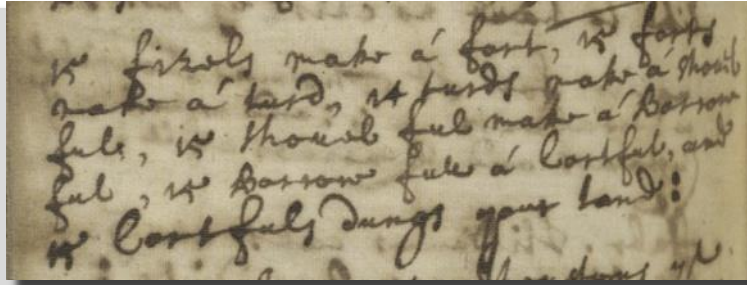 15 fizels make a fart, 15 farts
make a turd, 14 turds make a shouel
full, 15 shouel ful make a Barrow
ful, 15 Barrow full a Cartful, and
15 Cartfuls dungs your land: